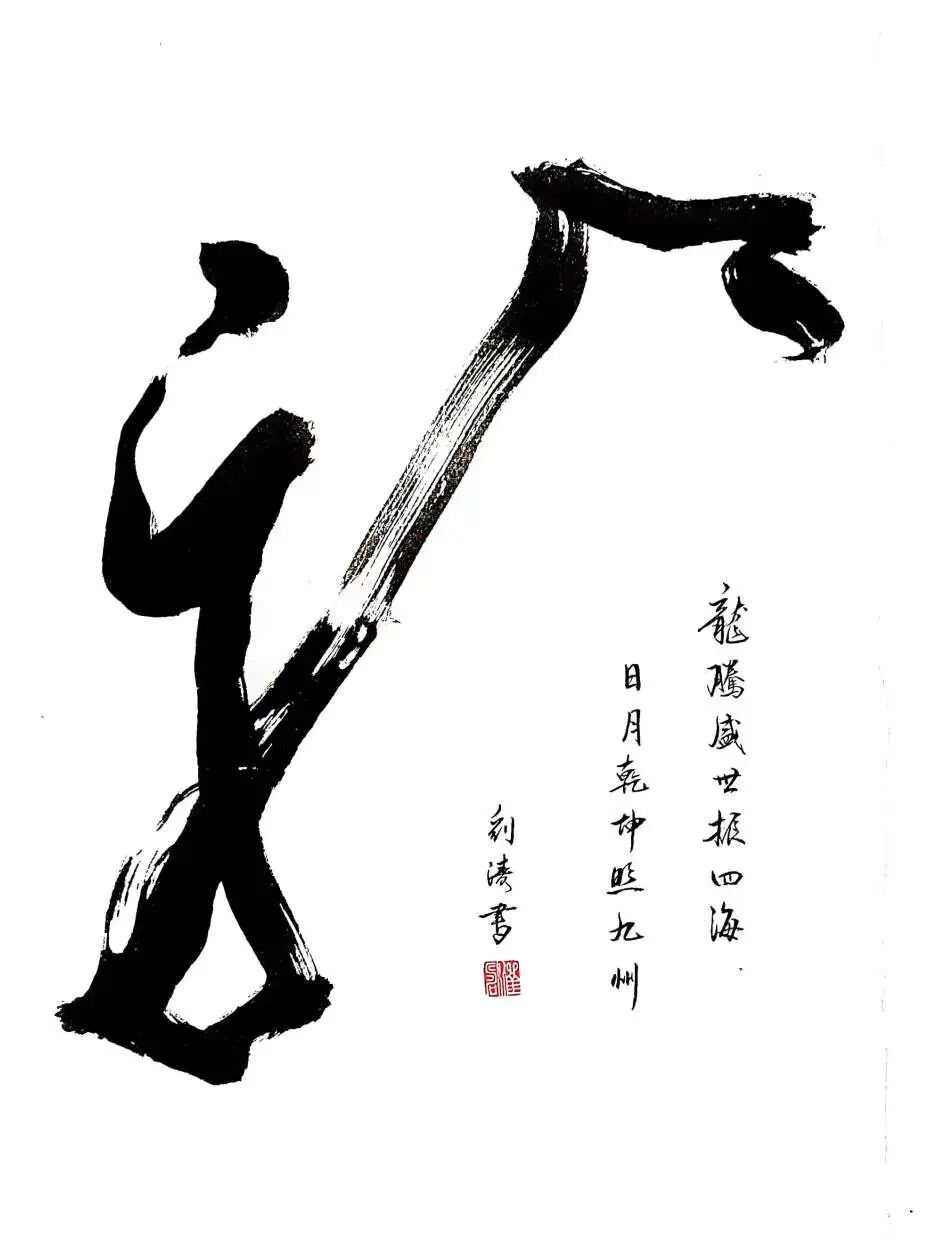 龍
龍騰盛世振四海
日月乾坤照九州
刘涛書